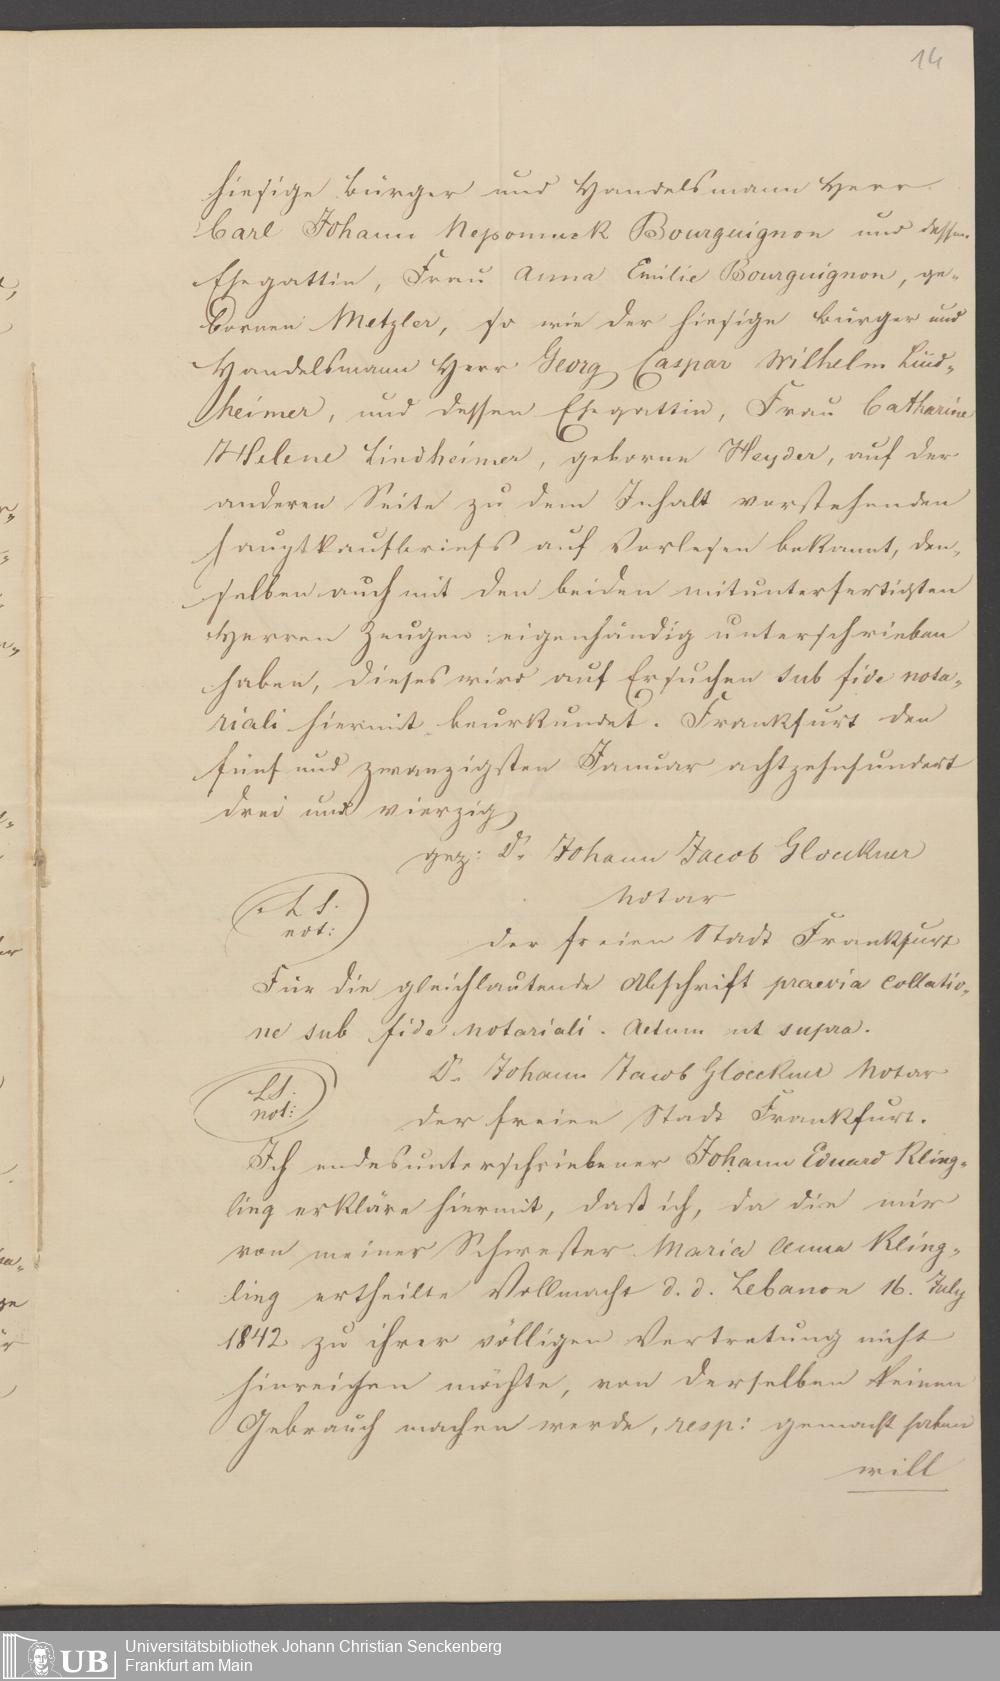 14
hiesige Bürger und Handelsmann Herr
Carl Johann Nepomuck Bourguignon und dessen
Ehegattin, Frau Anna Emilie Bourguignon, ge„
bornen Metzler, so wie der hiesige Bürger und
Handelsmann Herr Georg Caspar Wilhelm Lind„
heimer, und dessen Ehegattin, Frau Catharine
Helene Lindheimer, geborne Heyder, auf der
anderen Seite zu dem Inhalt vorstehenden
Hauptkaufbriefs auf Vorlesen bekannt, den„
selben auch mit den beiden mitunterfertigten
Herren Zeugen eigenhändig unterschrieben
haben, dieses wird auf Ersuchen sub fide nota„
riali hiermit beurkundet. Frankfurt den
fünf und zwanzigsten Januar achtzehnhundert
drei und vierzig
gez: Dr. Johann Jacob Gloeckner
Notar
L. S.
not:
der freien Stadt Frankfurt
Für die gleichlautende Abschrift praevia collatio„
ne sub fide notariali. Actum ut supra.
Dr. Johann Jacob Gloeckner Notar
LS.
not:
der freien Stadt Frankfurt.
Ich endesunterschriebener Johann Eduard Kling„
ling erkläre hiermit, daß ich, da die mir
von meiner Schwester Maria Anna Kling„
ling ertheilte Vollmacht d. d. Lebanon 16. July
1842 zu ihrer völligen Vertretung nicht
hinreichen möchte, von derselben keinen
Gebrauch machen werde, resp: gemacht haben
will
UB
Universitätsbibliothek Johann Christian Senckenberg
Frankfurt am Main